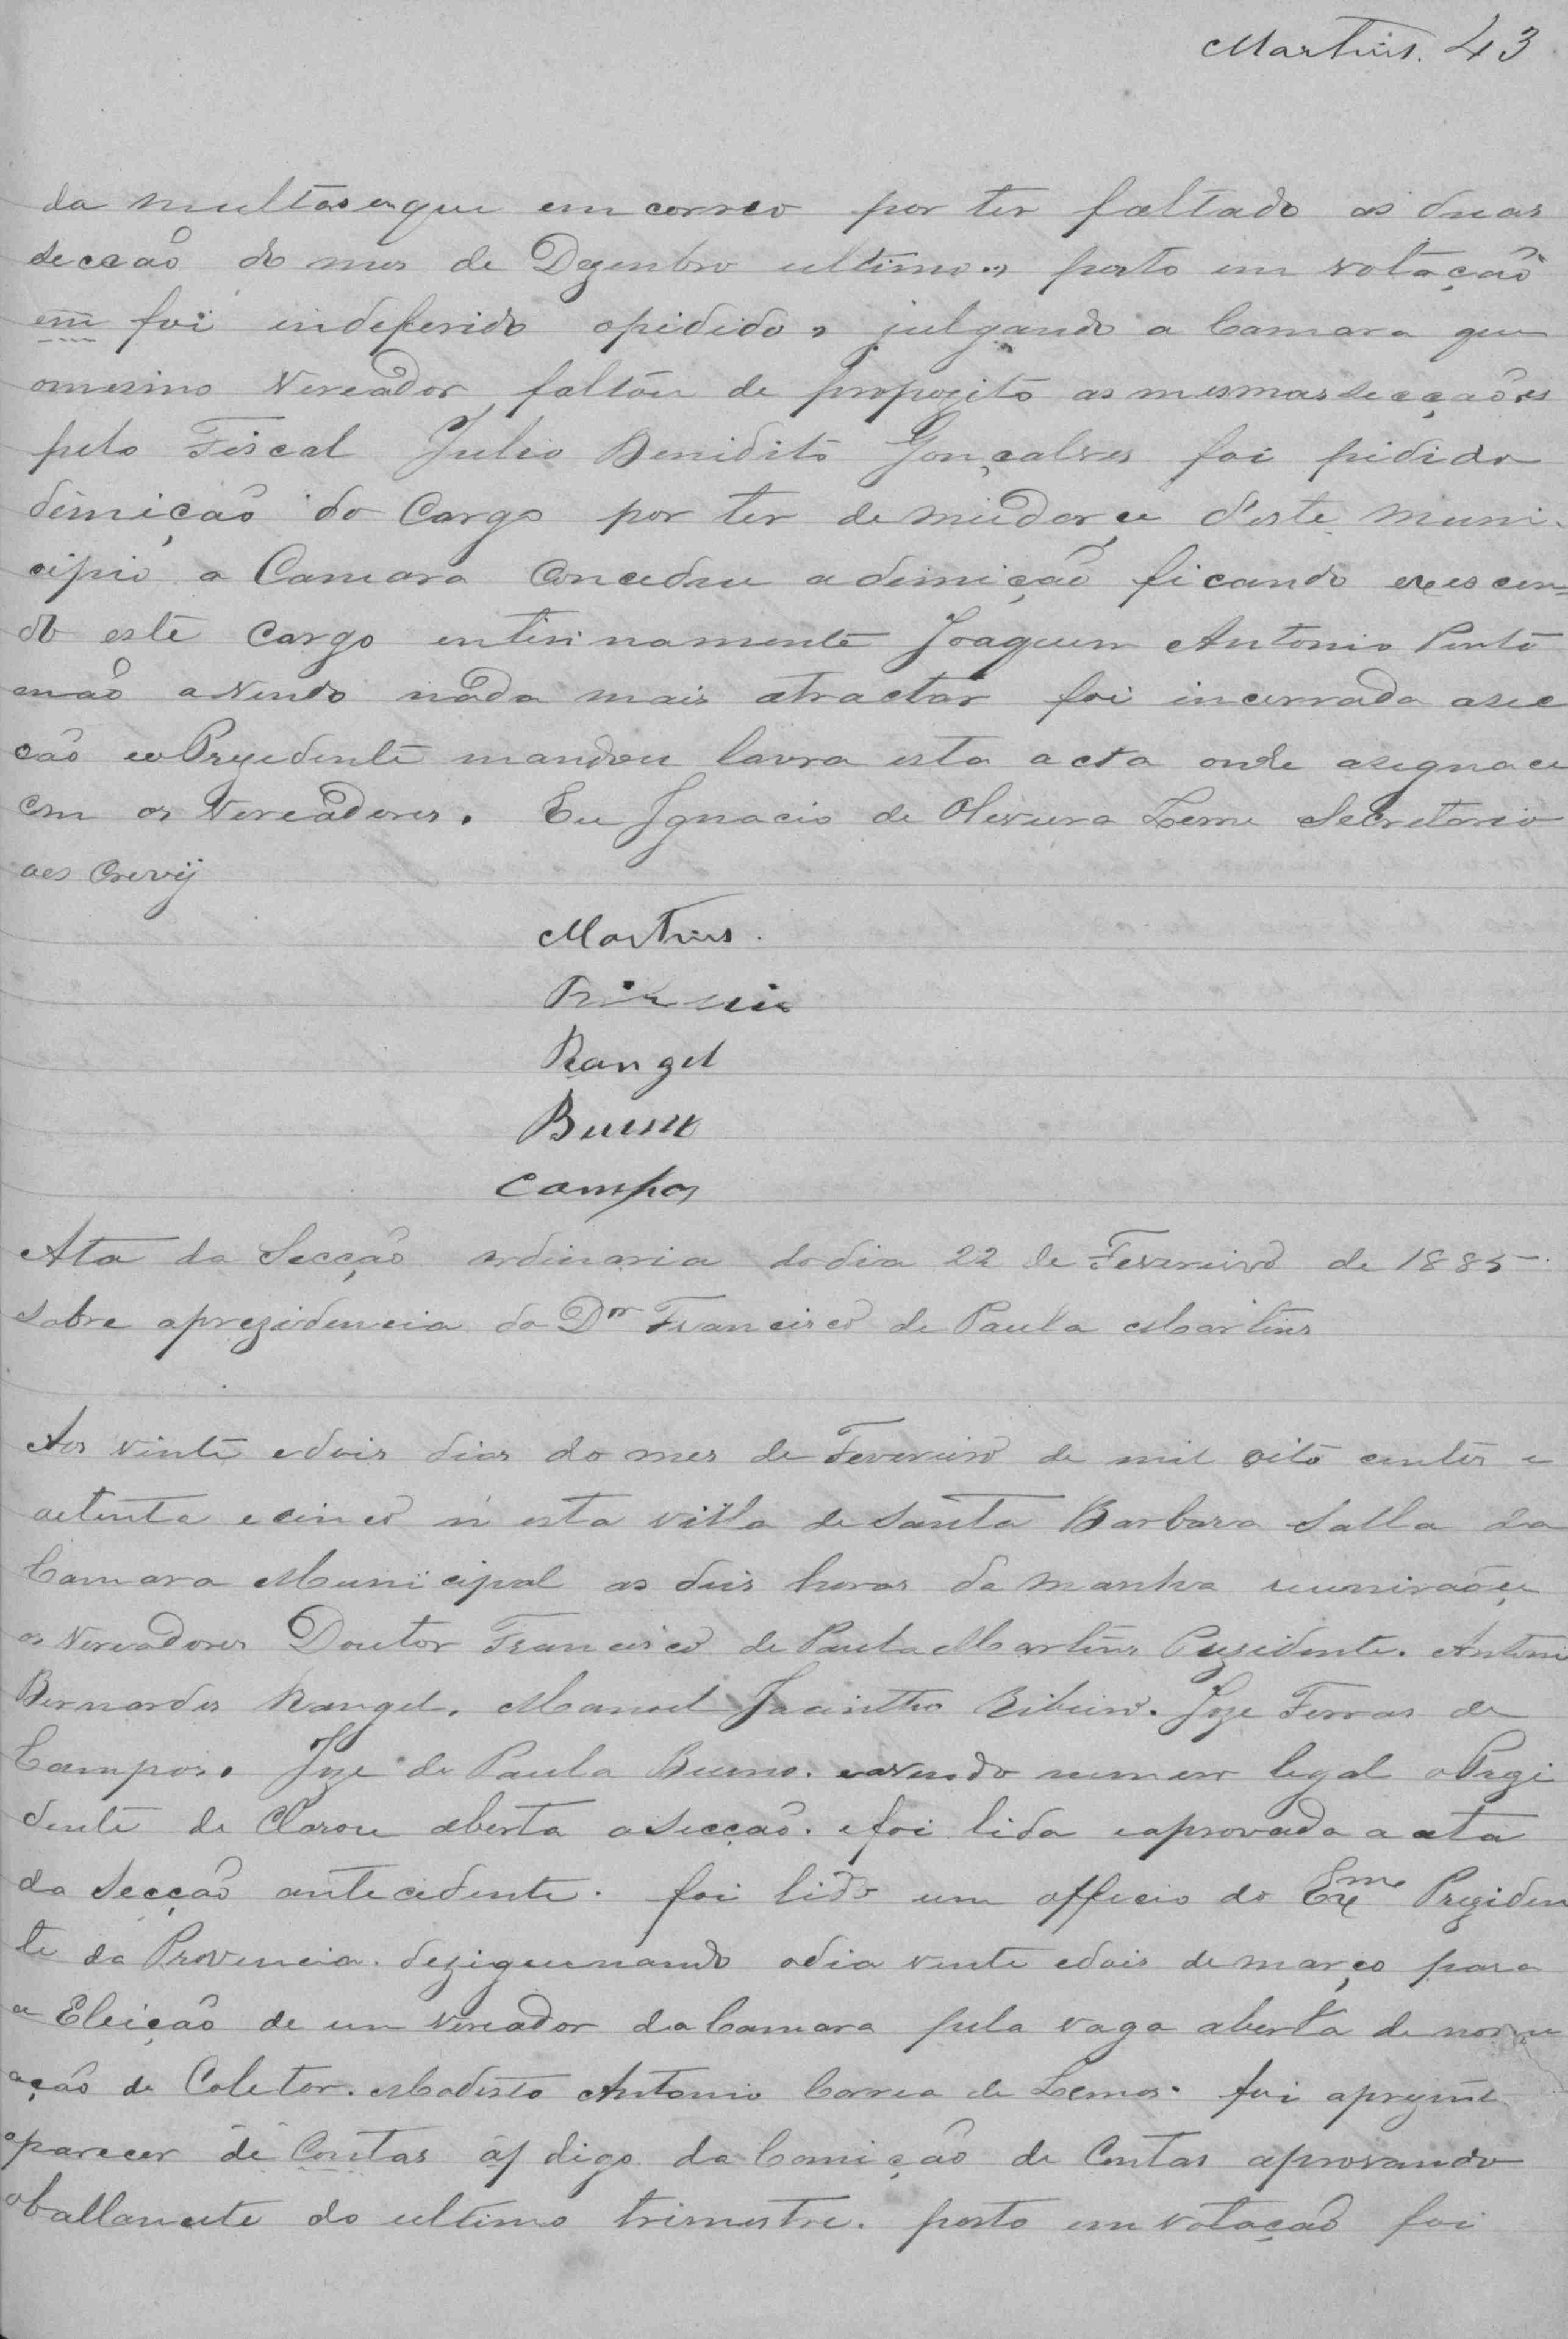 Martins. 43
da multas en que em correo por ter faltado as duas
secsaõ do mes de Dezenbro ultimo, posto em votaçaõ
em foi indeferido opidido, julgando a Camara que
omesmo Vereador faltou de propozito as mesmas secçaões
pelo Fiscal Julio Benidito Gonçalves foi pidido
dimiçaõ do Cargo por ter de mudarçe d'este muni-
cipio a Camara Concedeu a dimiçaõ ficando exescen=
do este Cargo entirinamente Joaquim Antonio Pinto
enaõ avendo nada mais atractar foi incerrada asec
çaõ eo Prezedente mandou lavra esta acta onde asegnace
com os Vereadores. Eu Ignacio de Oliveira Leme Secretario
aes Crevij
Martins.
Rangel
Bueno
Campos
Ata da Secçaõ ordinaria do dia 22 de Fevereiro de 1885
sobre aprezidencia do Dor Francisco de Paula Martins
Aos vinte edois dias do mes de Fevereiro de mil oito centos e
oitenta ecinco n'esta villa de Santa Barbara Salla da
Camara Municipal as deis horas da manha reuniraõçe
os Vereadores Doutor Francisco de Paula Martins Prezidente. Antonio
Bernardes Rangel. Manoel Jacintho Ribeiro. Joze Ferras de
Campos. Joze de Paula Bueno. eavendo numero legal o Prezi
dente de Clarou aberta a secçaõ. efoi lida eaprovada a ata
da Secçaõ antecedente. foi lido um officio do Exmo Preziden
te da Provencia. deziguinando odia vinte edois de março para
a Eleiçaõ de um vereador da Camara pela vaga aberta de nome
açaõ de Coletor. Modesto Antonio Correa de Lemos. foi aprezent
oparecer de Contas af digo da Comiçaõ de Contas aprovando
oballancete do ultimo trimestre. posto em votaçaõ foi